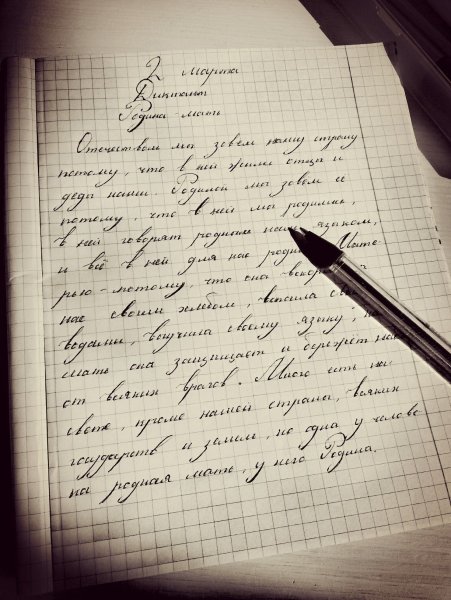 2 марта
Диктант
Родина-мать
Отечеством мы зовём нашу страну
потому, что в ней жили отцы и
деды наши. Родиной мы зовём её
потому, что в ней мы родились,
в ней говорят родным нам языком,
и всё в ней для нас родное. Мате-
рью-потому, что она вскормила
нас своим хлебом, вспоила сво
водами, выучила своему языку, к
мать она защищает и бережёт нас
от всяких врагов. Много есть на
свете, кроме нашей страны, всяких
государств и земель, но одна у челове
ка родная мать, у него Родина.